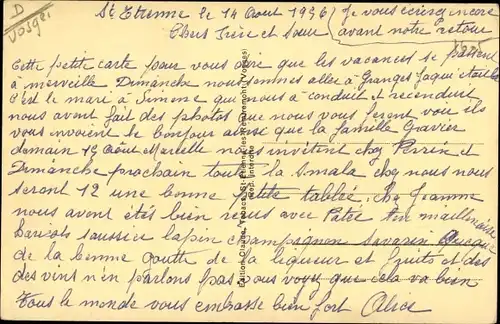 D
VOSGES
St Etienne le 14 Aout 1936
Je vous ecirez encore
avant notre retour
Chers Frère et Sœur
Cette petite carte pour vous dire que les vacances se passent
à merveille. Dimanche nous sommes alles à Granges
C'est le mari à Simone qui nous à conduit et reconduit
nous avont fait des photos que nous vous feront voir ils
vous envoient le bonjour ainsi que la famille Gravier
demain 15 Aout Marcelle nous invitent chez Perrin et
Dimanche prochain toute la smala chez nous nous
seront 12 une bonne petite tablée, chez Jeanne
nous avont étés bien reçus avec Patée
haricots saucisse lapin champagnon savarin
de la bonne goutte de la liqueur et fruits et des
des vins n'en parlons pas vous voyez que cela va bien
Tous le monde vous embrasse bien fort Alice